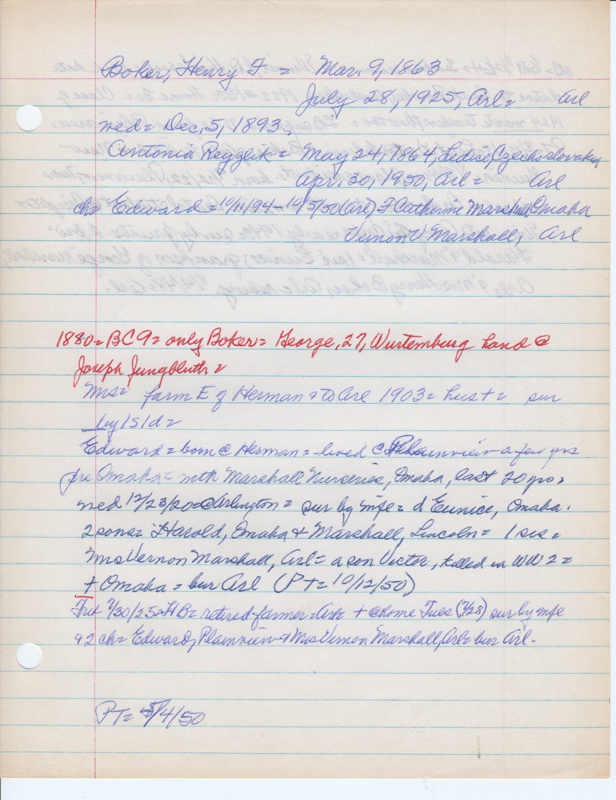 Boker, Henry F = Mar. 9, 1863
July 28, 1925, Arl = Arl
wed = Dec, 5, 1893,
Antonia = May 24, 1864, Ledice, Czechoslovakia
Apr, 30, 1950, Arl = Arl
ch = Edward = 10/11/94 - 10/5/50 (Arl) F Catherine Marshal, Omaha
Vernon V Marshall, Arl
1880 = BC9 = only Boker = George, 27, Wurtemburg hand @
Joseph Jungbluth =
Mrs = farm E of Herman + to Arl 1903 = hust = sur
by 1s 1d =
Edward = born @ Herman = lived @ Plainview a few yrs
pre Omaha = with Marshall Nurseries, Omaha, last 20 yrs,
wed 12/23/20 @ Arlington = sur by wife = d Eunice, Omaha.
2 sons = Harold, Omaha + Marshall, Lincoln = 1 sis =
Mrs Vernon Marshall, Arl = a son Victor, killed in WW 2 =
+ Omaha = bur Arl (PT = 10/12/50)
7/30/25 = HB = retired farmer = Arl + @ home Tues (7/28) sur by wife
+ 2 ch = Edward, Plainview + Mrs Vernon Marshall, Arl = bur Arl.
PT = 5/4/50